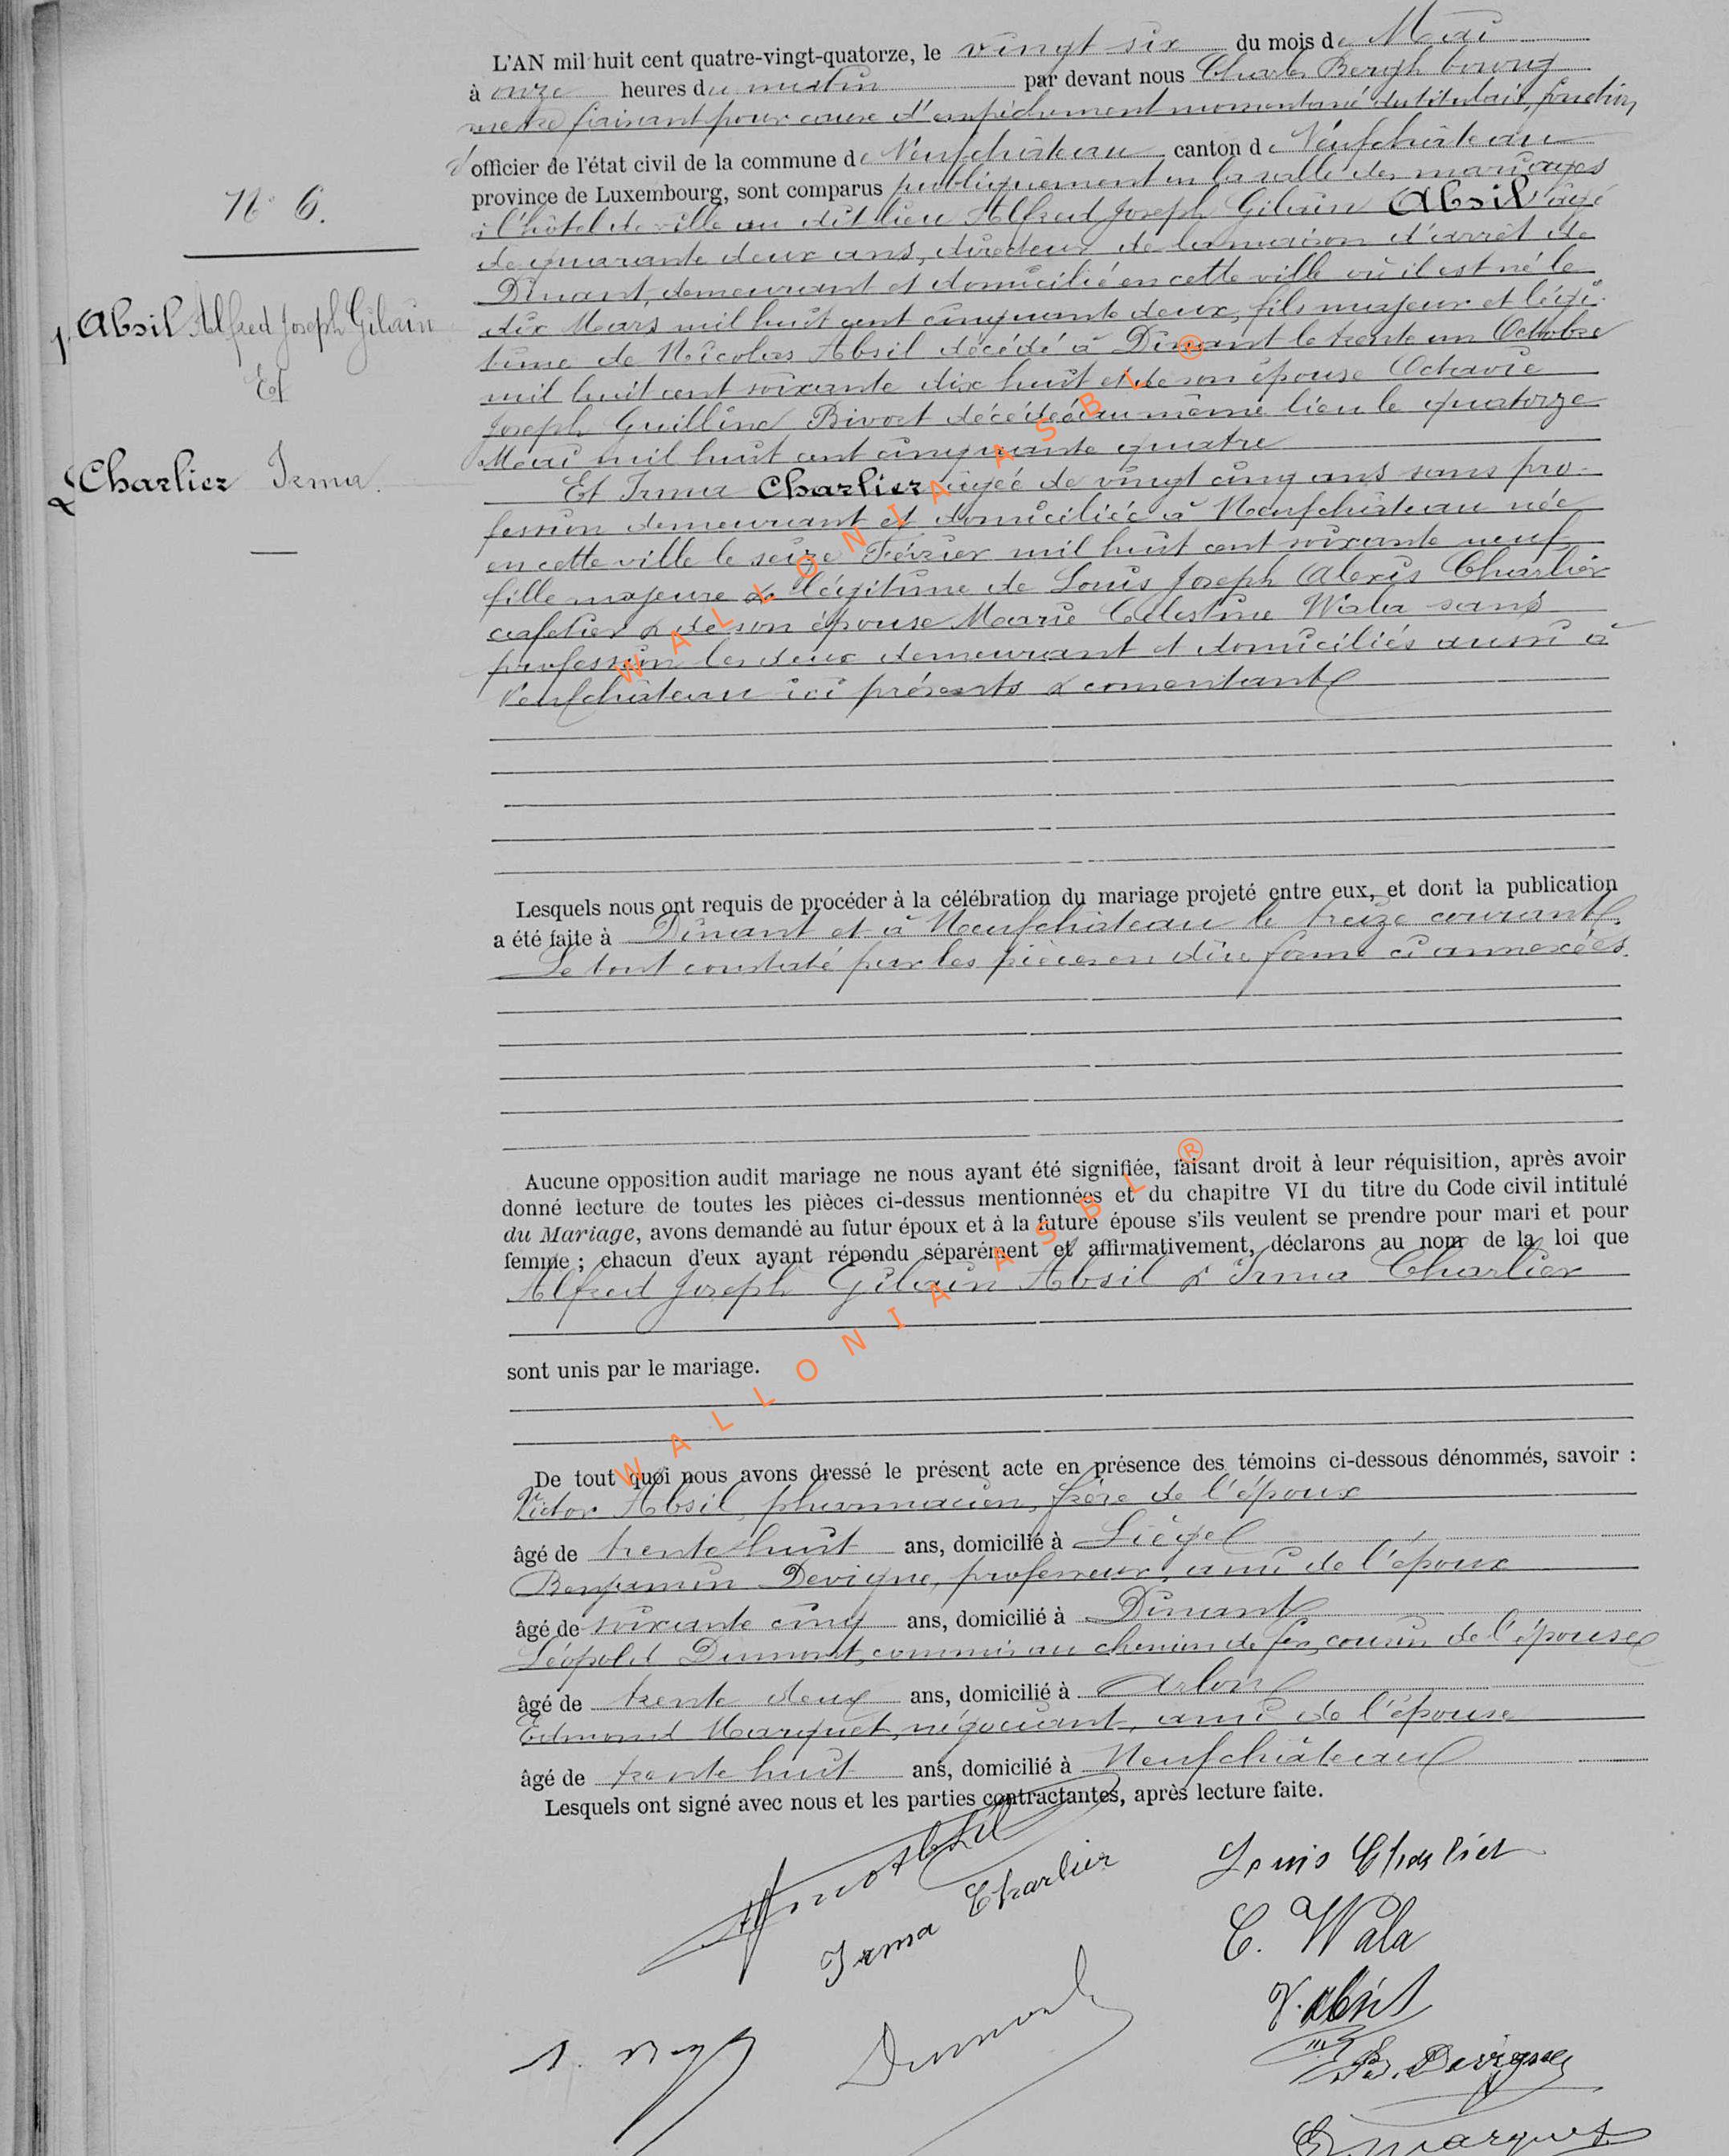 N° 6.
1, Absil Alfred Joseph Gilain
Et
2 Charlier Irma.
L'AN mil huit cent quatre-vingt-quatorze, le vingt six du mois de Mai
à onze heures du matin par devant nous Charles Bergh bourg
mestre faisant pour cause d'empêchement momentané du titulaire, fonction
d'officier de l'état civil de la commune de Neufchâteau canton de Neufchâteau
province de Luxembourg, sont comparus publiquement en la salle des mariages
à l'hôtel de ville au dit lieu Alfred Joseph Gilain Absil âgé
de quarante deux ans, directeur de la maison d'arrêt de
Dinant, demeurant et domicilié en cette ville où il est né le
dix Mars mil huit cent cinquante deux, fils majeur et légi-
time de Nicolas Absil décédé à Dinant le trente un Octobre
mil huit cent soixante dix huit et de son épouse Octavie
Joseph Guilline Bivort décédée au même lieu le quatorze
Mai mil huit cent cinquante quatre
Et Irma Charlier âgée de vingt cinq ans sans pro-
fession demeurant et domiciliée à Neufchâteau née
en cette ville le seize Février mil huit cent soixante neuf
fille majeure & légitime de Louis Joseph Alexis Charlier
cafetier & de son épouse Marie Célestine Wala sans
profession les deux demeurant et domiciliés aussi à
Neufchâteau ici présents & consentants
Lesquels nous ont requis de procéder à la célébration du mariage projeté entre eux, et dont la publication
a été faite à Dinant et à Neufchâteau le treize courant.
Le tout constaté par les pièces en due forme ci annexées.
Aucune opposition audit mariage ne nous ayant été signifiée, faisant droit à leur réquisition, après avoir
donné lecture de toutes les pièces ci-dessus mentionnées et du chapitre VI du titre du Code civil intitulé
du Mariage, avons demandé au futur époux et à la future épouse s'ils veulent se prendre pour mari et pour
femme ; chacun d'eux ayant répondu séparément et affirmativement, déclarons au nom de la loi que
Alfred Joseph Gilain Absil & Irma Charlier
sont unis par le mariage.
De tout quoi nous avons dressé le présent acte en présence des témoins ci-dessous dénommés, savoir :
Victor Absil, pharmacien, frère de l'époux
âgé de trente huit ans, domicilié à Liège
Benjamin Devigne, professeur, ami de l'époux
âgé de soixante cinq ans, domicilié à Dinant
Léopold Dumont, commis au chemin de fer, cousin de l'épouse
âgé de trente deux ans, domicilié à Arlon
Edmond Marquet, négociant, ami de l'épouse
âgé de trente huit ans, domicilié à Neufchâteau
Lesquels ont signé avec nous et les parties contractantes, après lecture faite.
Absil
Irma Charlier
Louis Charlier
C. Wala
V. Absil
Dumont
B. Devigne
E. Marquet
WALLONIA ASBL ®
WALLONIA ASBL ®